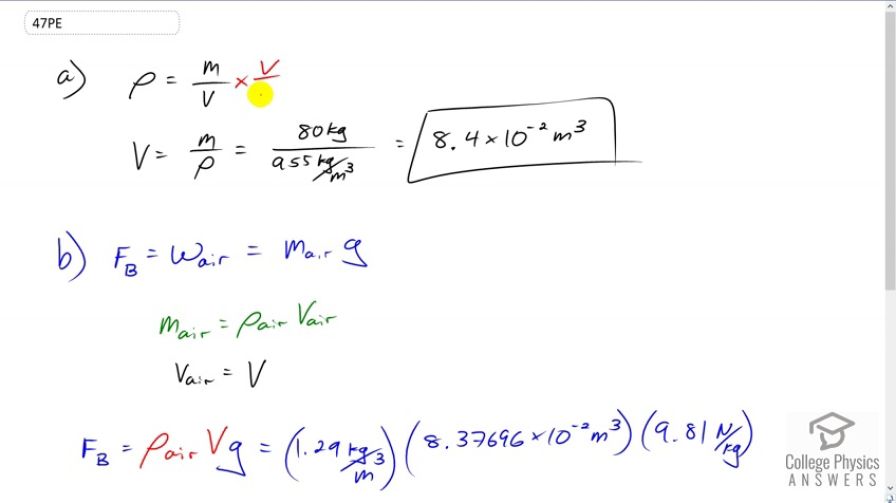 47PE
a) ρ = m/V × V/
V = m/ρ = 80 kg / 955 kg/m³ = 8.4 × 10⁻² m³
b) F_B = w_air = m_air g
m_air = ρ_air V_air
V_air = V
F_B = ρ_air V g = (1.29 kg/m³) (8.37696 × 10⁻² m³) (9.81 N/kg)
College Physics
ANSWERS